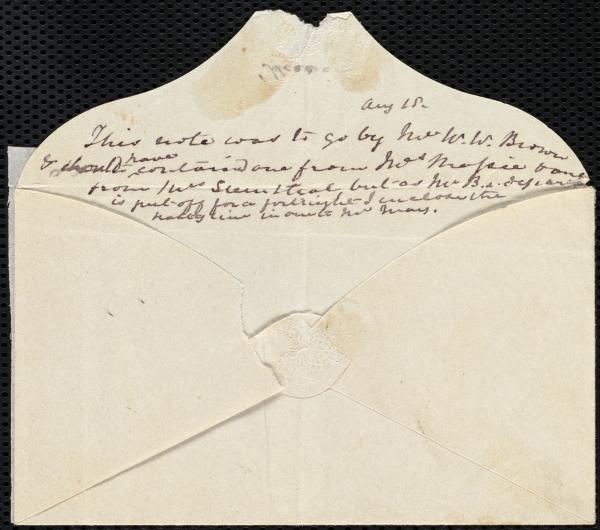 Aug 18.
This note was to go by Mr W. W. Brown
& should have contained one from Mrs Massie & one
from Mrs Steinthal, but as Mr B.s departure
is put off for a fortnight I enclose the
note in one to Mr May.